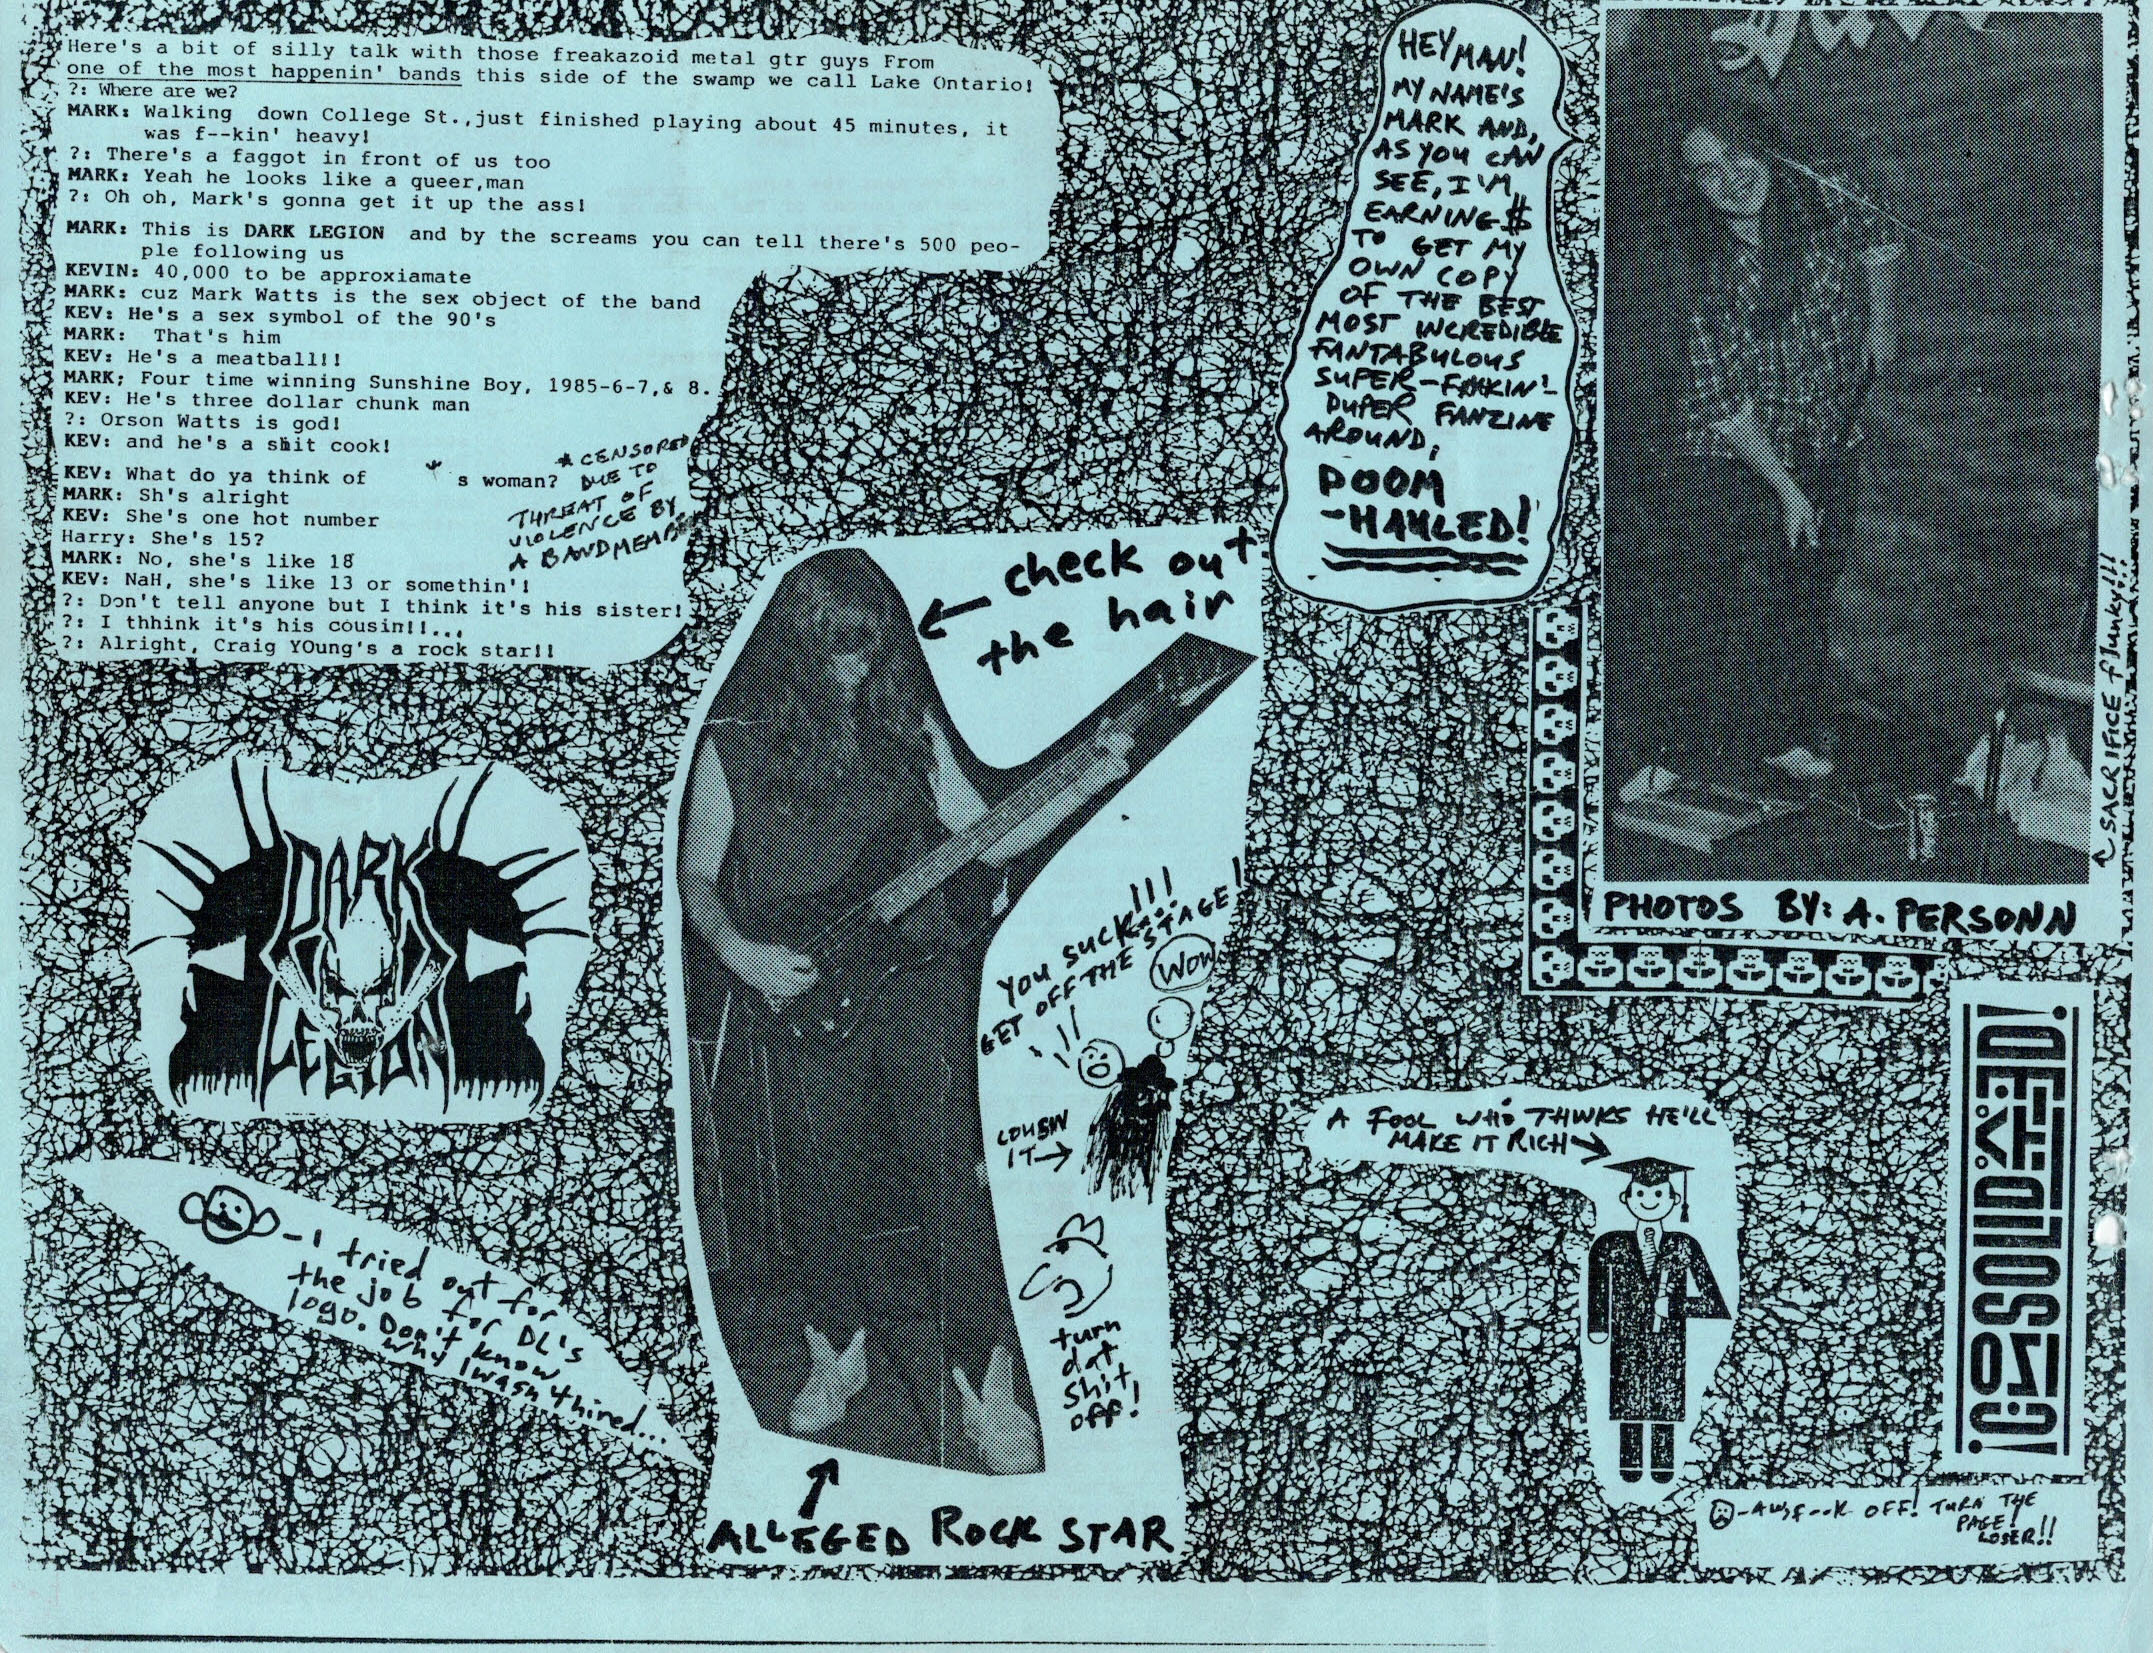 Here's a bit of silly talk with those freakazoid metal gtr guys From
one of the most happenin' bands this side of the swamp we call Lake Ontario!
?: Where are we?
MARK: Walking down College St.,just finished playing about 45 minutes, it
was f--kin' heavy!
?: There's a faggot in front of us too
MARK: Yeah he looks like a queer,man
?: Oh oh, Mark's gonna get it up the ass!
MARK: This is DARK LEGION and by the screams you can tell there's 500 peo-
ple following us
KEVIN: 40,000 to be approxiamate
MARK: cuz Mark Watts is the sex object of the band
KEV: He's a sex symbol of the 90's
MARK: That's him
KEV: He's a meatball!!
MARK; Four time winning Sunshine Boy, 1985-6-7,& 8.
KEV: He's three dollar chunk man
?: Orson Watts is god!
KEV: and he's a shit cook!
KEV: What do ya think of * s woman?
MARK: Sh's alright
KEV: She's one hot number
Harry: She's 15?
MARK: No, she's like 18
KEV: NaH, she's like 13 or somethin'!
?: Don't tell anyone but I think it's his sister!
?: I thhink it's his cousin!!...
?: Alright, Craig YOung's a rock star!!
* CENSORED
DUE TO
THREAT OF
VIOLENCE BY
A BANDMEMBER
DARK
LEGION
- I tried out for
the job for DL's
logo. Don't know
why I wasn't hired...
check out
the hair
YOU SUCK!!!
GET OFF THE STAGE!
WOW
COUSIN
IT→
turn
dat
shit
off!
ALLEGED ROCK STAR
HEY MAN!
MY NAME'S
MARK AND,
AS YOU CAN
SEE, I'M
EARNING $
TO GET MY
OWN COPY
OF THE BEST
MOST INCREDIBLE
FANTABULOUS
SUPER-F**KIN'-
DUPER FANZINE
AROUND,
DOOM
-HAULED!
SACRIFICE flunky!!!
PHOTOS BY: A. PERSONN
A FOOL WHO THINKS HE'LL
MAKE IT RICH→
¡CONSOLIDATED!
-AW, F--K OFF! TURN THE
PAGE!
LOSER!!